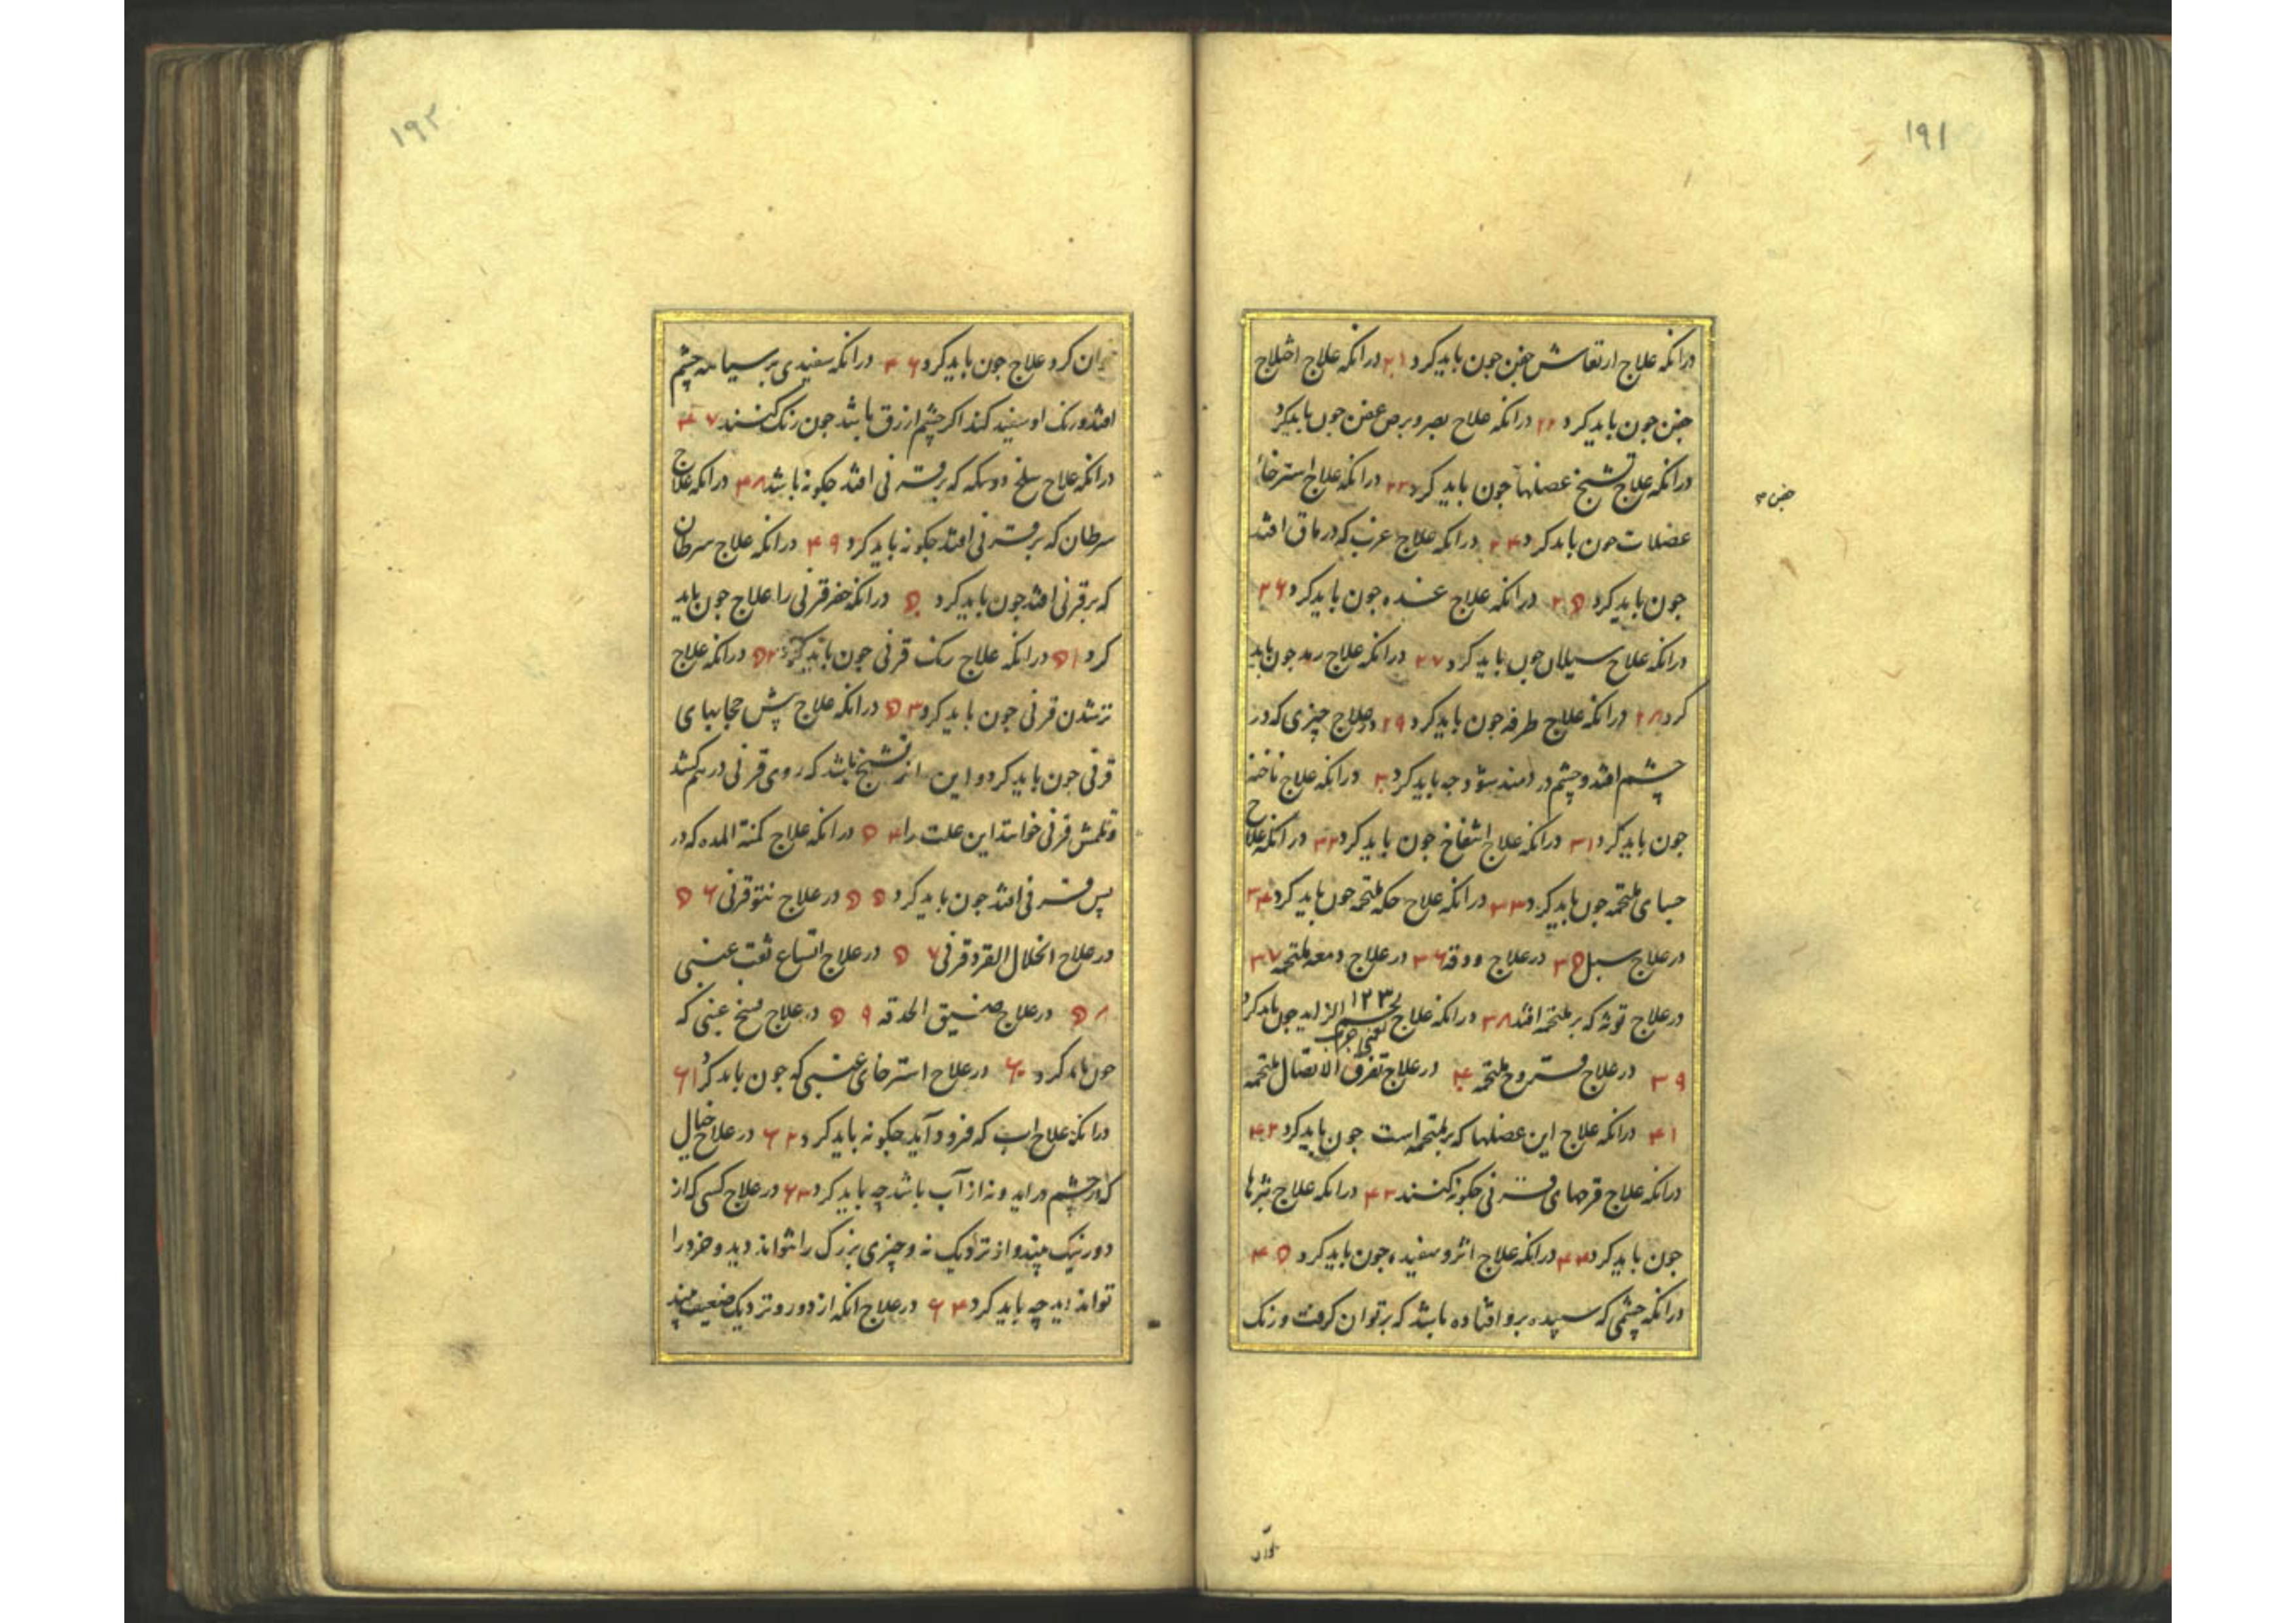 ۱۹۱
درانکه علاج ارتعاش جفن جون باید کرد ۲۱ درانکه علاج اختلاج
جفن جون باید کرد ۲۲ درانکه علاج و برص جون باید کرد
درانکه علاج تشنج عضلها جون باید کرد ۲۳ درانکه علاج استرخا
عضلات جون باید کرد ۲۴ درانکه علاج غرب که در ماق افتد
جون باید کرد ۲۵ درانکه علاج غده جون باید کرد ۲۶
درانکه علاج سیلان جون باید کرد ۲۷ درانکه علاج رمد جون باید
کرد ۲۸ درانکه علاج طرفه جون باید کرد ۲۹ در علاج چیزی که در
چشم افتد و چشم دردمند شود چه باید کرد ۳۰ درانکه علاج ناخنه
جون باید کرد ۳۱ درانکه علاج انتفاخ جون باید کرد ۳۲ درانکه علاج
جسای ملتحمه جون باید کرد ۳۳ درانکه علاج حکه ملتحمه جون باید کرد ۳۴
در علاج سبل ۳۵ در علاج ودقه ۳۶ در علاج دمعه ملتحمه ۳۷
در علاج توثه که بر ملتحمه افتد ۳۸ درانکه علاج لحم الزاید جون باید کرد
۱۲۳
۳۹ در علاج قروح ملتحمه ۴۰ در علاج تفرق الاتصال ملتحمه
۴۱ درانکه علاج این عضلها که بر ملتحمه است جون باید کرد ۴۲
درانکه علاج قرحهای قرنی چکونه کنند ۴۳ درانکه علاج بثرها
جون باید کرد ۴۴ درانکه علاج اثر و سفیده جون باید کرد ۴۵
درانکه چشمی که سپیده برو افتاده باشد که برتوان کرفت و رنک
۱۹۲
توان کرد علاج جون باید کرد ۴۶ درانکه سفیدی بر سیاهه چشم
افتد و رنک او سفید کند اکر چشم ازرق باشد جون رنک کنند ۴۷
درانکه علاج سلخ که بر قرنی افتد چکونه باشد ۴۸ درانکه علاج
سرطان که بر قرنی افتد چکونه باید کرد ۴۹ درانکه علاج سرطان
که بر قرنی افتد جون باید کرد ۵۰ درانکه حفر قرنی را علاج جون باید
کرد ۵۱ درانکه علاج رنک قرنی جون باید کرد ۵۲ درانکه علاج
تر شدن قرنی جون باید کرد ۵۳ درانکه علاج پش حجابهای
قرنی جون باید کرد و این از تشنج باشد که روی قرنی درهم کشد
قرنی خوانند این علت را ۵۴ درانکه علاج کمنة المده که در
پس قرنی افتد جون باید کرد ۵۵ در علاج نتو قرنی ۵۶
در علاج انحلال الفرد قرنی ۵۷ در علاج اتساع ثقب عنبی
۵۸ در علاج ضیق الحدقه ۵۹ در علاج عنبی که
جون باید کرد ۶۰ در علاج استرخای عنبی که جون باید کرد ۶۱
درانکه علاج اب که فرود آید چکونه باید کرد ۶۲ در علاج خیال
که در چشم دراید و نه از آب باشد چه باید کرد ۶۳ در علاج کسی که از
دور نیک بیند و از نزدیک نه و چیزی بزرک را نتواند دید و خرد را
تواند دید چه باید کرد ۶۴ در علاج انکه از دور و نزدیک ضعیف بیند